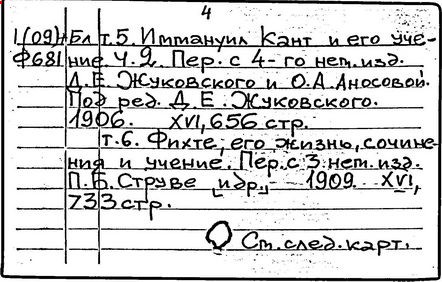 4
1(09)+Бл т.5. Иммануил Кант и его уче-
Ф681 ние. Ч.2. Пер. с 4-го нем. изд.
Д.Е. Жуковского и О.А. Аносовой.
Под ред. Д.Е. Жуковского.
1906. XVI, 656 стр.
т.6. Фихте, его жизнь, сочине-
ния и учение. Пер. с 3 нем. изд.
П.Б. Струве [и др.,- 1909 XVI,
733 стр.
См. след. карт.